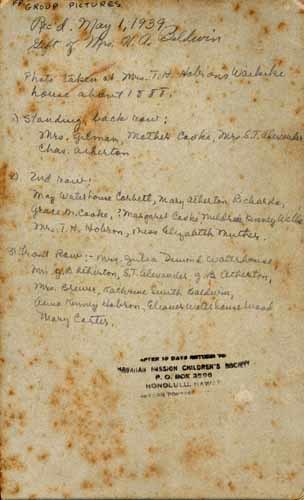 GROUP PICTURES
Rec'd. May 1, 1939.
Gift of Mrs. W. A. Baldwin
Photo taken at Mrs. T. H. Hobron's Waikiki
house about 1888.
1) Standing back row:
Mrs. Gilman, Mother Cooke, Mrs. S.T. Alexander
Chas. Atherton
2) 2nd row:
May Waterhouse Corbett, Mary Atherton Richards,
Grace M. Cooke, ? Margaret Cooke Mildred Kinney Wells
Mrs. T. H. Hobron, Miss Elizabeth Muther.
3) Front Row:- Mrs. Julia Dimond Waterhouse
Mrs. J.B. Atherton, S.T. Alexander, J.B. Atherton,
Mrs. Brewer, Katherine Smith Baldwin,
Anna Kinney Hobron, Eleanor Waterhouse Wood
Mary Carter.
AFTER 10 DAYS RETURN TO
HAWAIIAN MISSION CHILDREN'S SOCIETY
P. O. BOX 3596
HONOLULU, HAWAII
RETURN POSTAGE